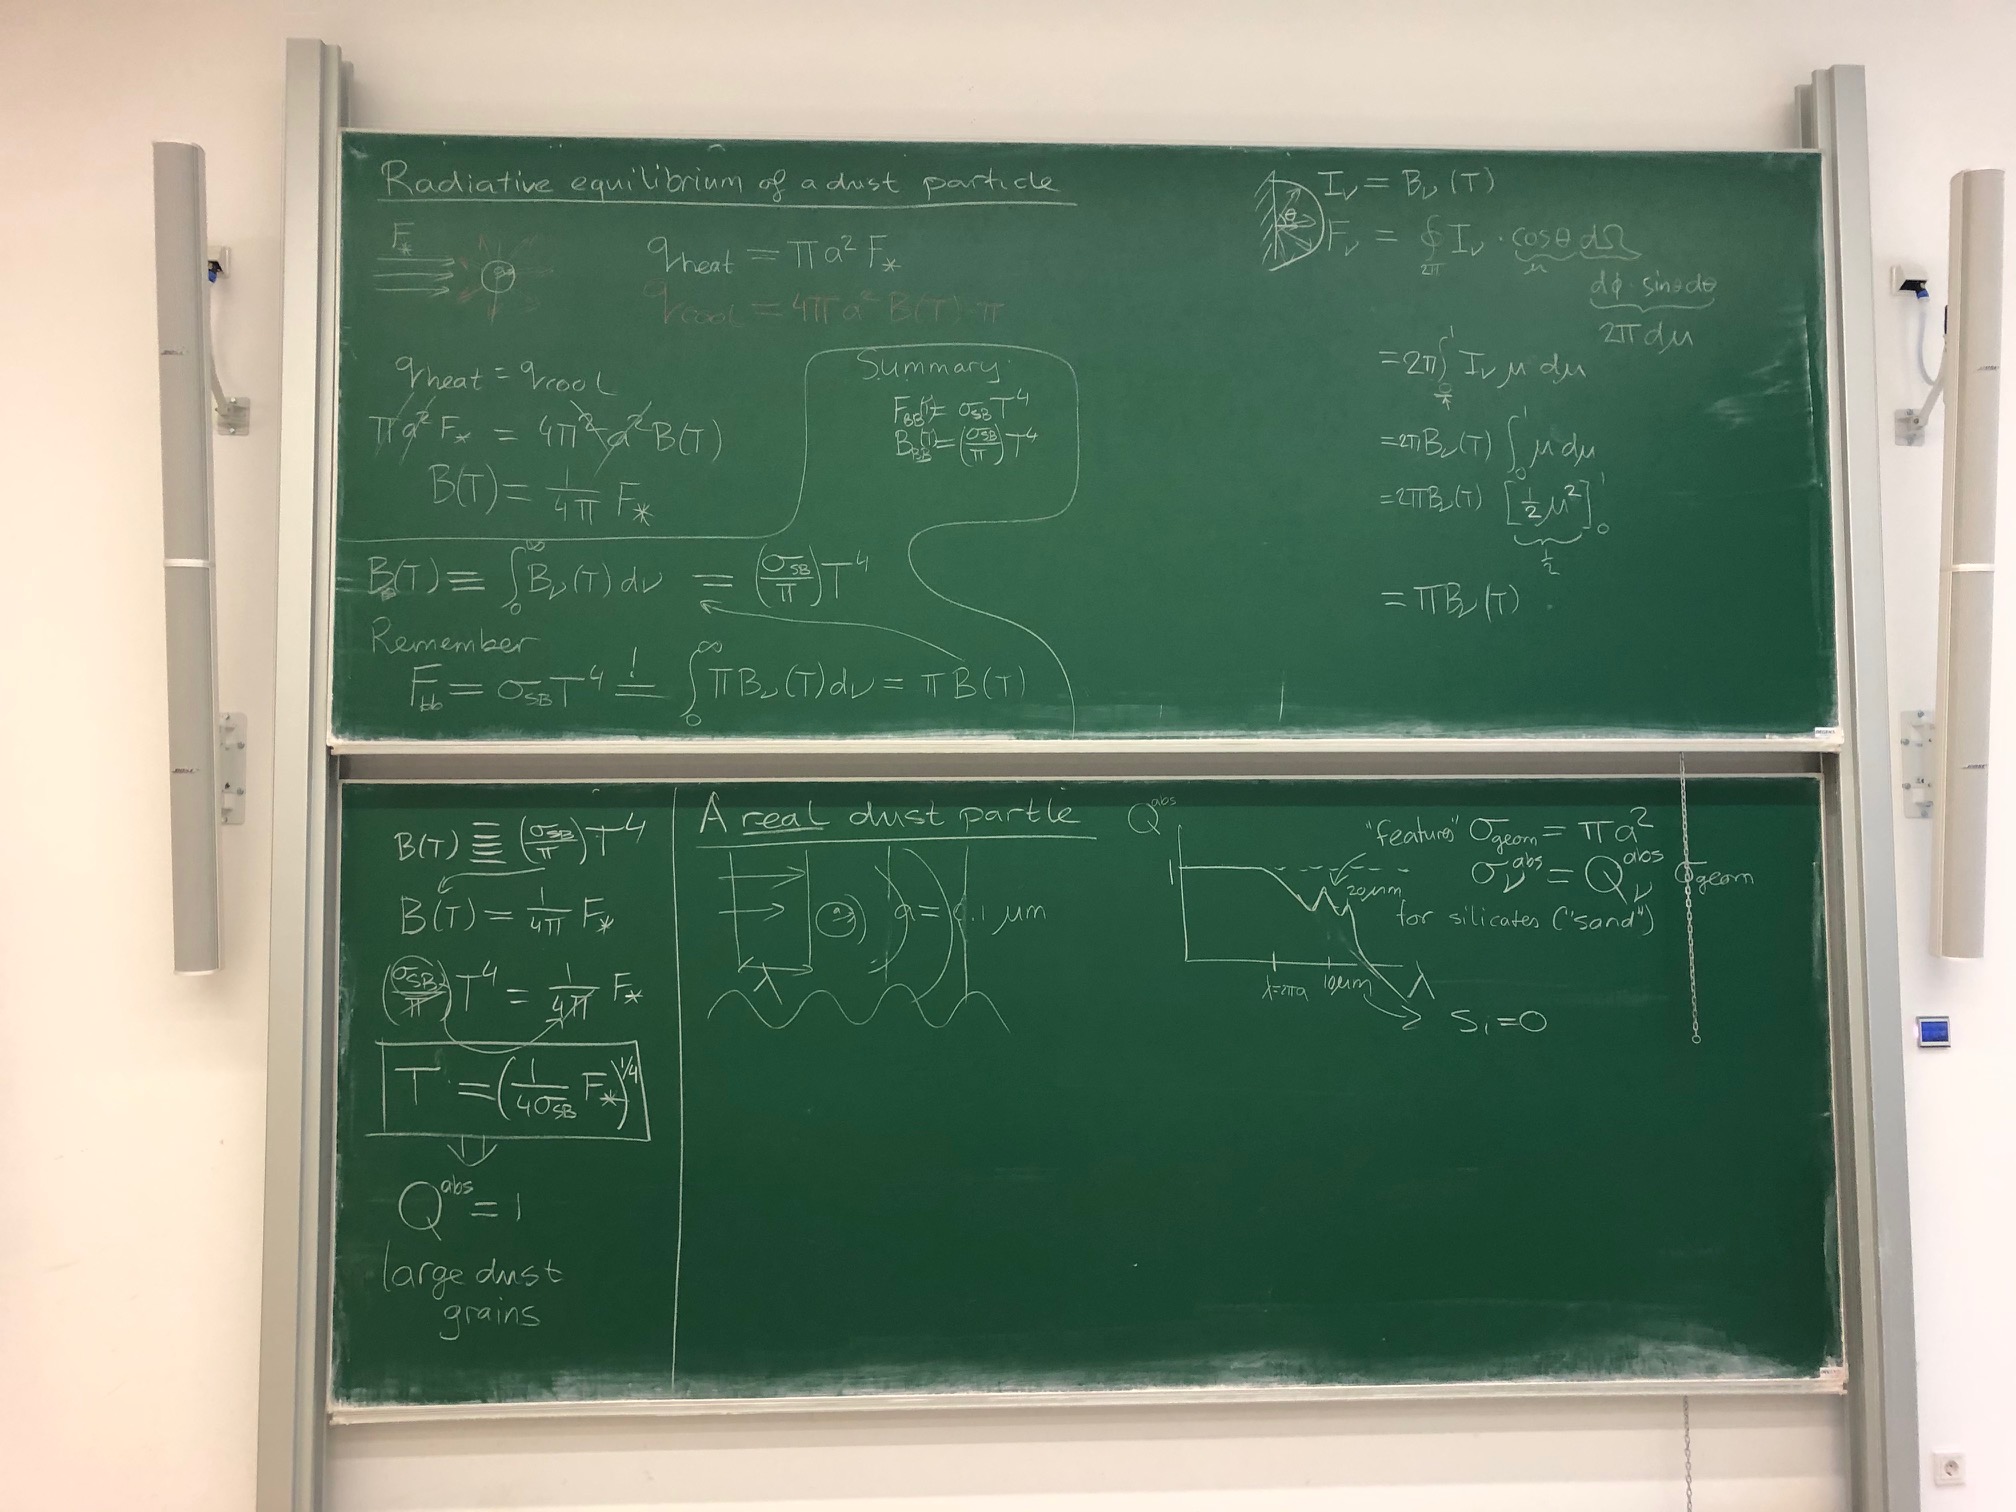 Radiative equilibrium of a dust particle
F_*
a
q_heat = πa² F_*
q_cool = 4πa² B(T)·π
q_heat = q_cool
πa² F_* = 4π² a² B(T)
B(T) = 1/4π F_*
Summary:
F_BB(T) = σ_SB T⁴
B_BB(T) = (σ_SB/π) T⁴
B(T) ≡ ∫₀^∞ B_ν(T) dν = (σ_SB/π) T⁴
Remember
F_bb = σ_SB T⁴ =! ∫₀^∞ π B_ν(T) dν = π B(T)
θ
I_ν = B_ν(T)
F_ν = ∮_2π I_ν · cosθ dΩ
μ
dφ · sinθ dθ
2π dμ
= 2π ∫₀¹ I_ν μ dμ
= 2π B_ν(T) ∫₀¹ μ dμ
= 2π B_ν(T) [½ μ²]₀¹
½
= π B_ν(T)
B(T) ≡ (σ_SB/π) T⁴
B(T) = 1/4π F_*
(σ_SB/π) T⁴ = 1/4π F_*
T = (1/4σ_SB F_*)^1/4
Q^abs = 1
large dust
grains
A real dust partle
a
a = 0.1 μm
λ
Q^abs
1
"features"
20μm
λ=2πa
10μm
λ
σ_geom = πa²
σ_ν^abs = Q_ν^abs σ_geom
for silicates ("sand")
S_i = 0